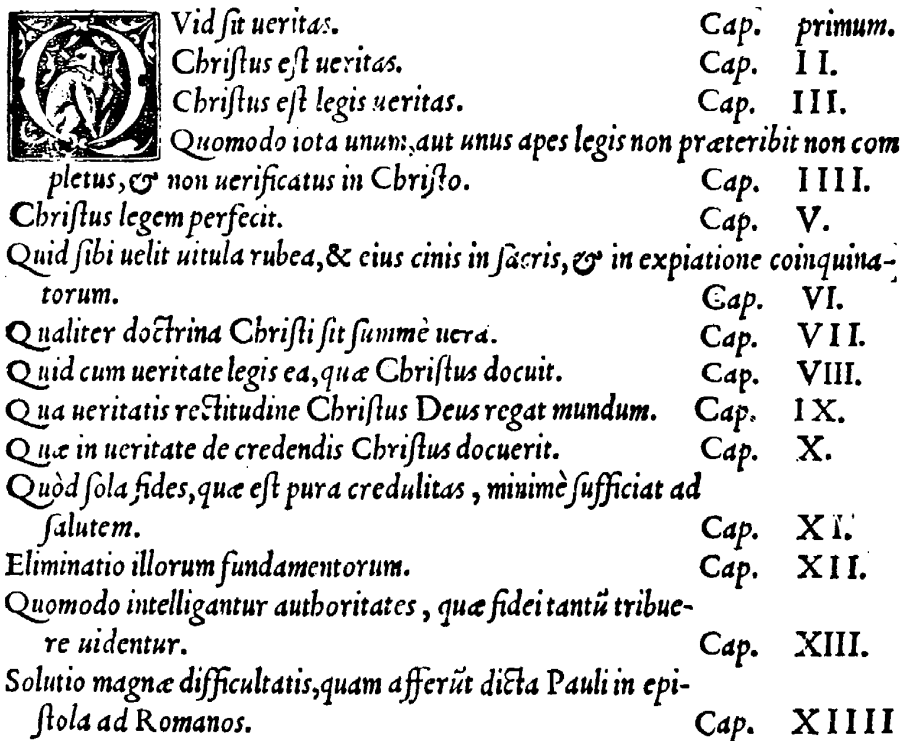 QVid ſit ueritas. Cap. primum.
Chriſtus eſt ueritas. Cap. II.
Chriſtus eſt legis ueritas. Cap. III.
Quomodo iota unum, aut unus apes legis non præteribit non com
pletus, & non uerificatus in Chriſto. Cap. IIII.
Chriſtus legem perfecit. Cap. V.
Quid ſibi uelit uitula rubea, & eius cinis in ſacris, & in expiatione coinquina-
torum. Cap. VI.
Qualiter doctrina Chriſti ſit ſummè uera. Cap. VII.
Quid cum ueritate legis ea, quæ Chriſtus docuit. Cap. VIII.
Qua ueritatis rectitudine Chriſtus Deus regat mundum. Cap. IX.
Quæ in ueritate de credendis Chriſtus docuerit. Cap. X.
Quòd ſola fides, quæ eſt pura credulitas, minimè ſufficiat ad
ſalutem. Cap. XI.
Eliminatio illorum fundamentorum. Cap. XII.
Quomodo intelligantur authoritates, quæ fidei tantũ tribue-
re uidentur. Cap. XIII.
Solutio magnæ difficultatis, quam afferũt dicta Pauli in epi-
ſtola ad Romanos. Cap. XIIII